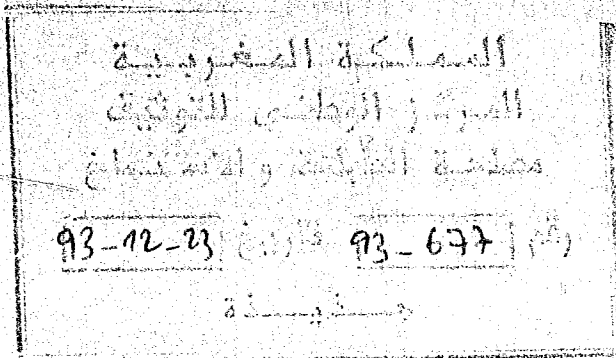 المملكة المغربية
المركز الوطني للتوثيق
مصلحة الطباعة والاستنساخ
رقم 93-677 تاريخ 93-12-23